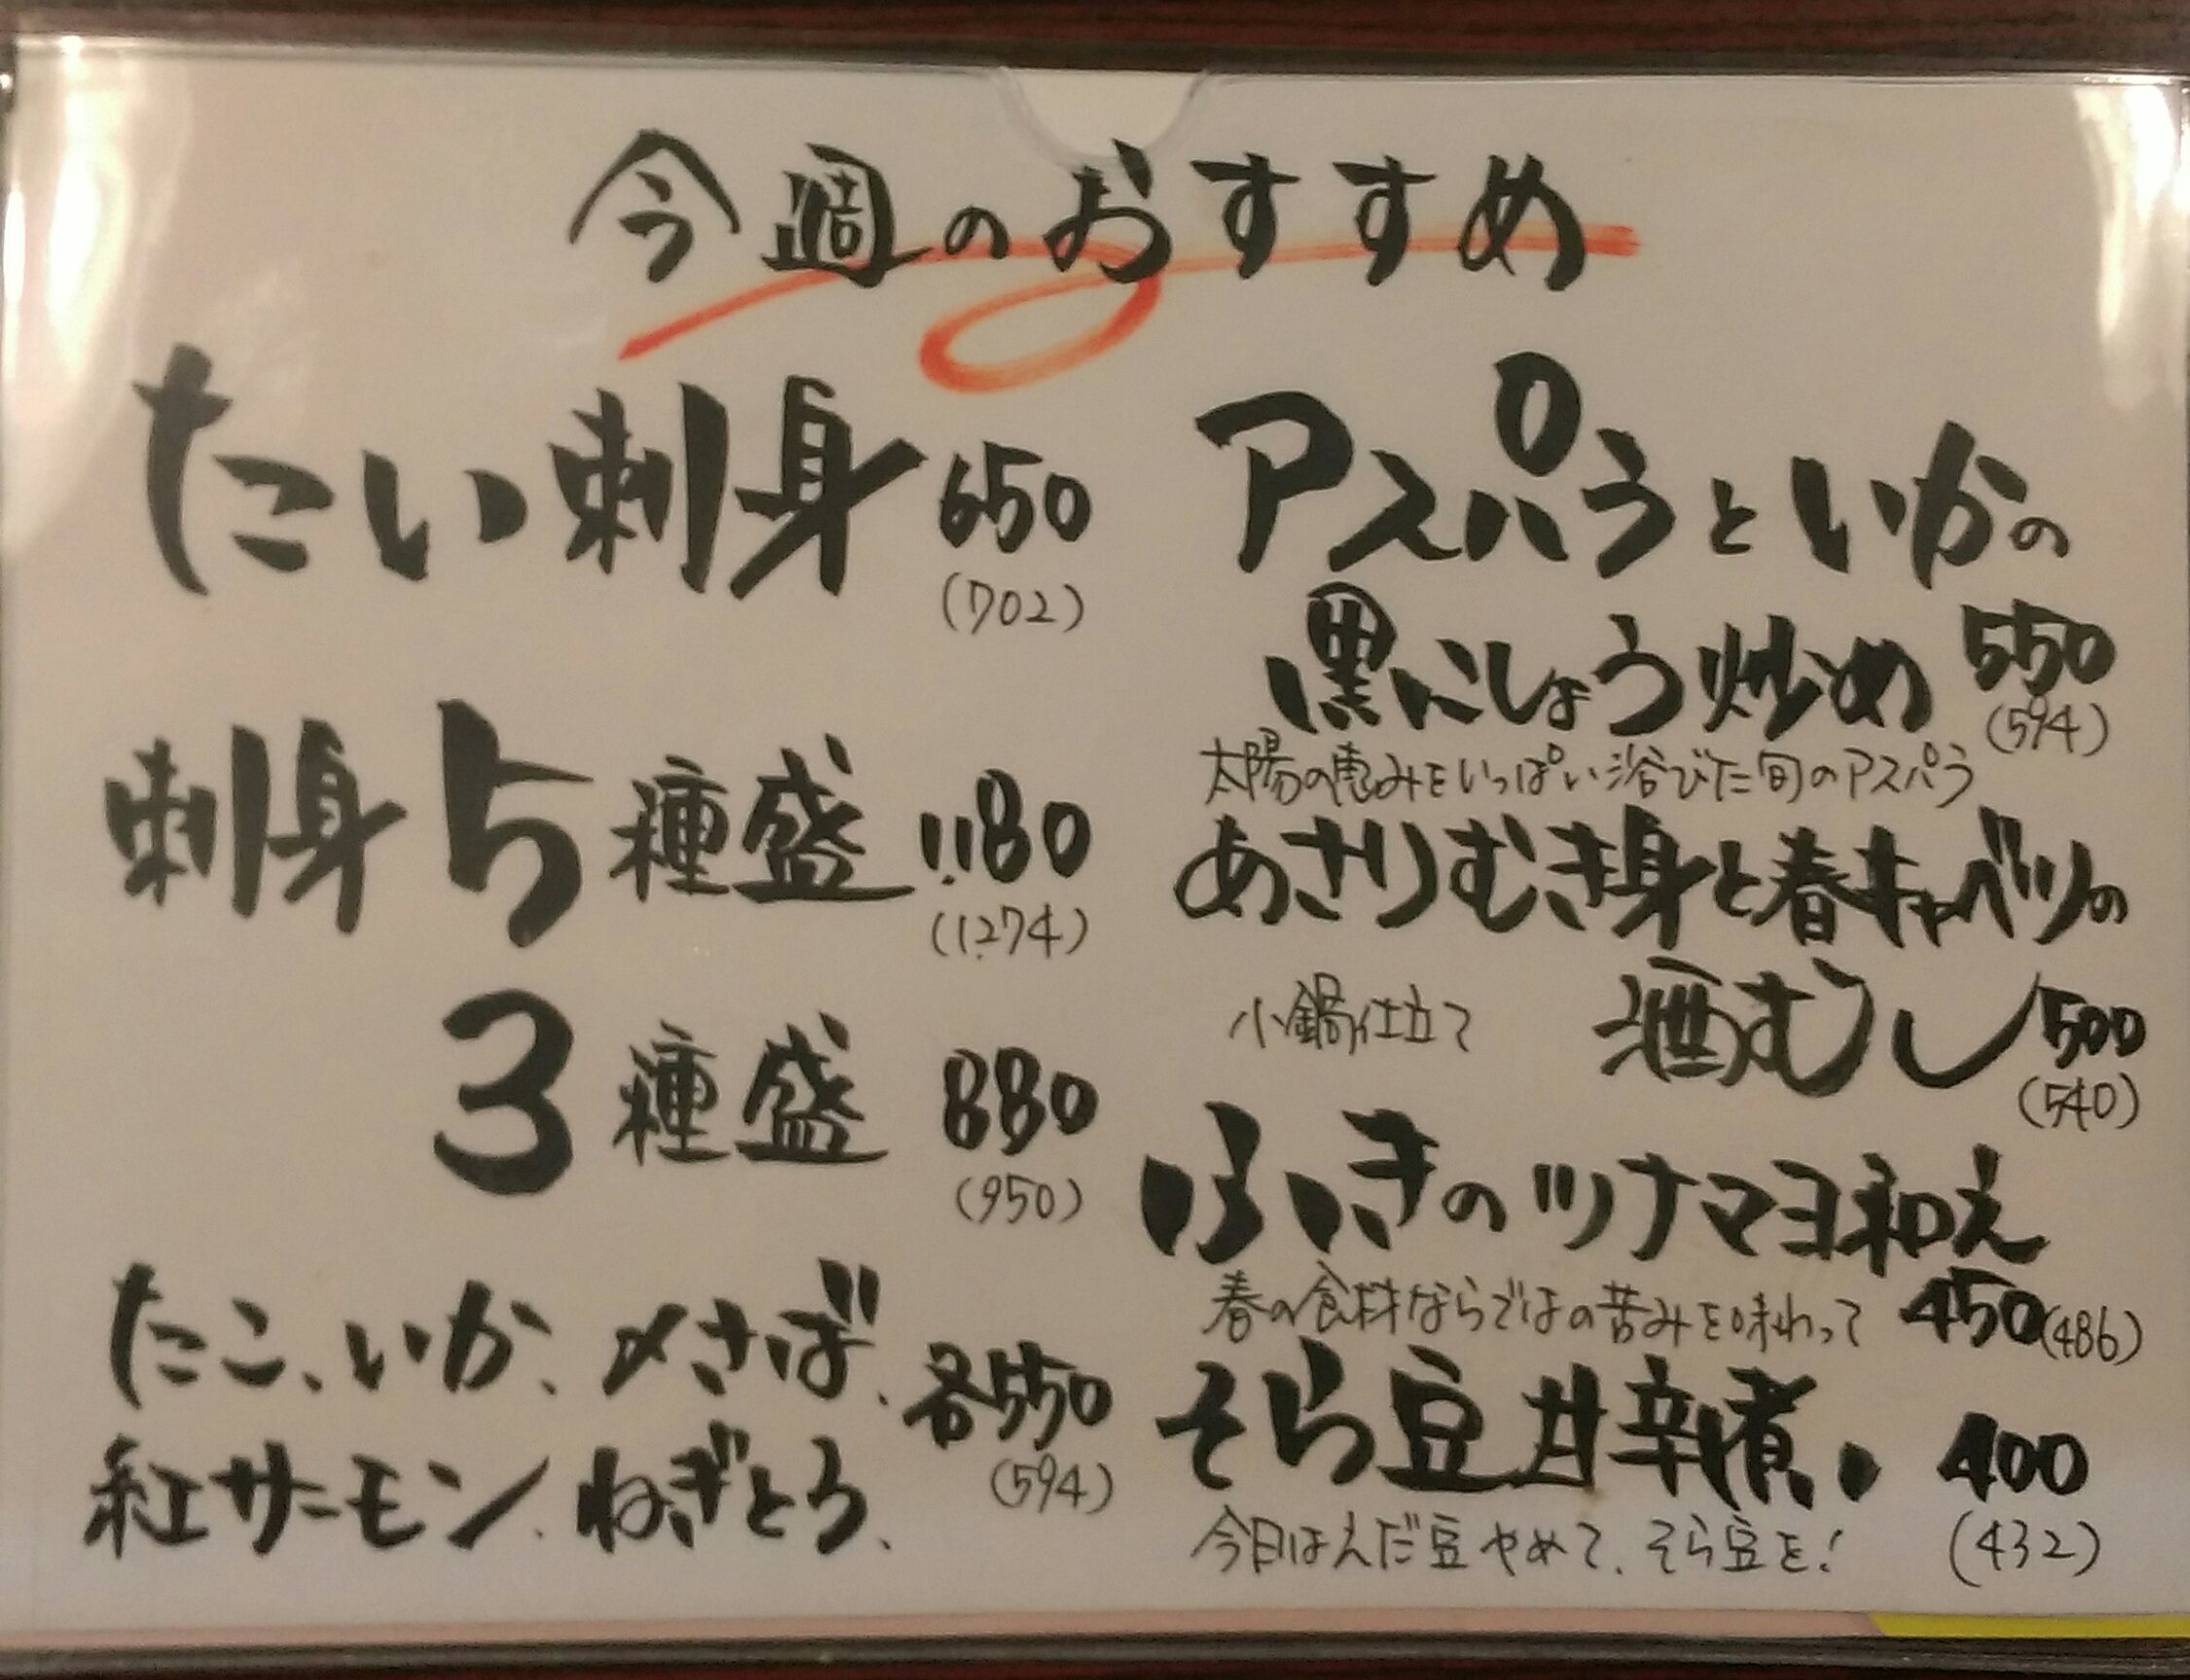 今週のおすすめ
たい刺身 650
(702)
刺身5種盛 1,180
(1,274)
3種盛 880
(950)
たこ、いか、〆さば、
各550
(594)
紅サーモン、ねぎとろ、
アスパラといかの
黒にしょう炒め 550
(594)
太陽の恵みをいっぱい浴びた旬のアスパラ
あさりむき身と春キャベツの
小鍋仕立て 酒むし 500
(540)
ふきのツナマヨ和え
春の食材ならではの苦みを味わって 450(486)
そら豆甘辛煮。 400
(432)
今日はえだ豆やめて、そら豆を!